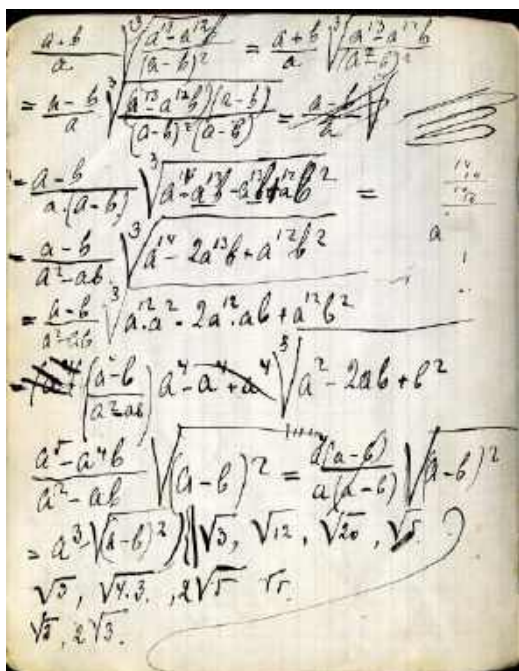 a+b/a ∛(a¹³-a¹²b/(a-b)²) = a+b/a ∛(a¹³-a¹²b/(a-b)²)
= a-b/a ∛((a¹³-a¹²b)(a-b)/(a-b)²(a-b)) = a-b/a √
= a-b/a(a-b) ∛(a¹⁴-a¹³b-a¹³b+a¹²b²) =
= a-b/a²-ab ∛(a¹⁴-2a¹³b+a¹²b²)
a
= a-b/a²-ab ∛(a¹²·a²-2a¹²·ab+a¹²b²)
= (a-b/a²-ab) a⁴-a⁴+a⁴ ∛(a²-2ab+b²)
a⁵-a⁴b/a²-ab √(a-b)² = (a-b)/a(a-b) √(a-b)²
= a³√(a-b)² √3, √12, √20, √5
√3, √4·3, 2√5 √5
√3, 2√3.